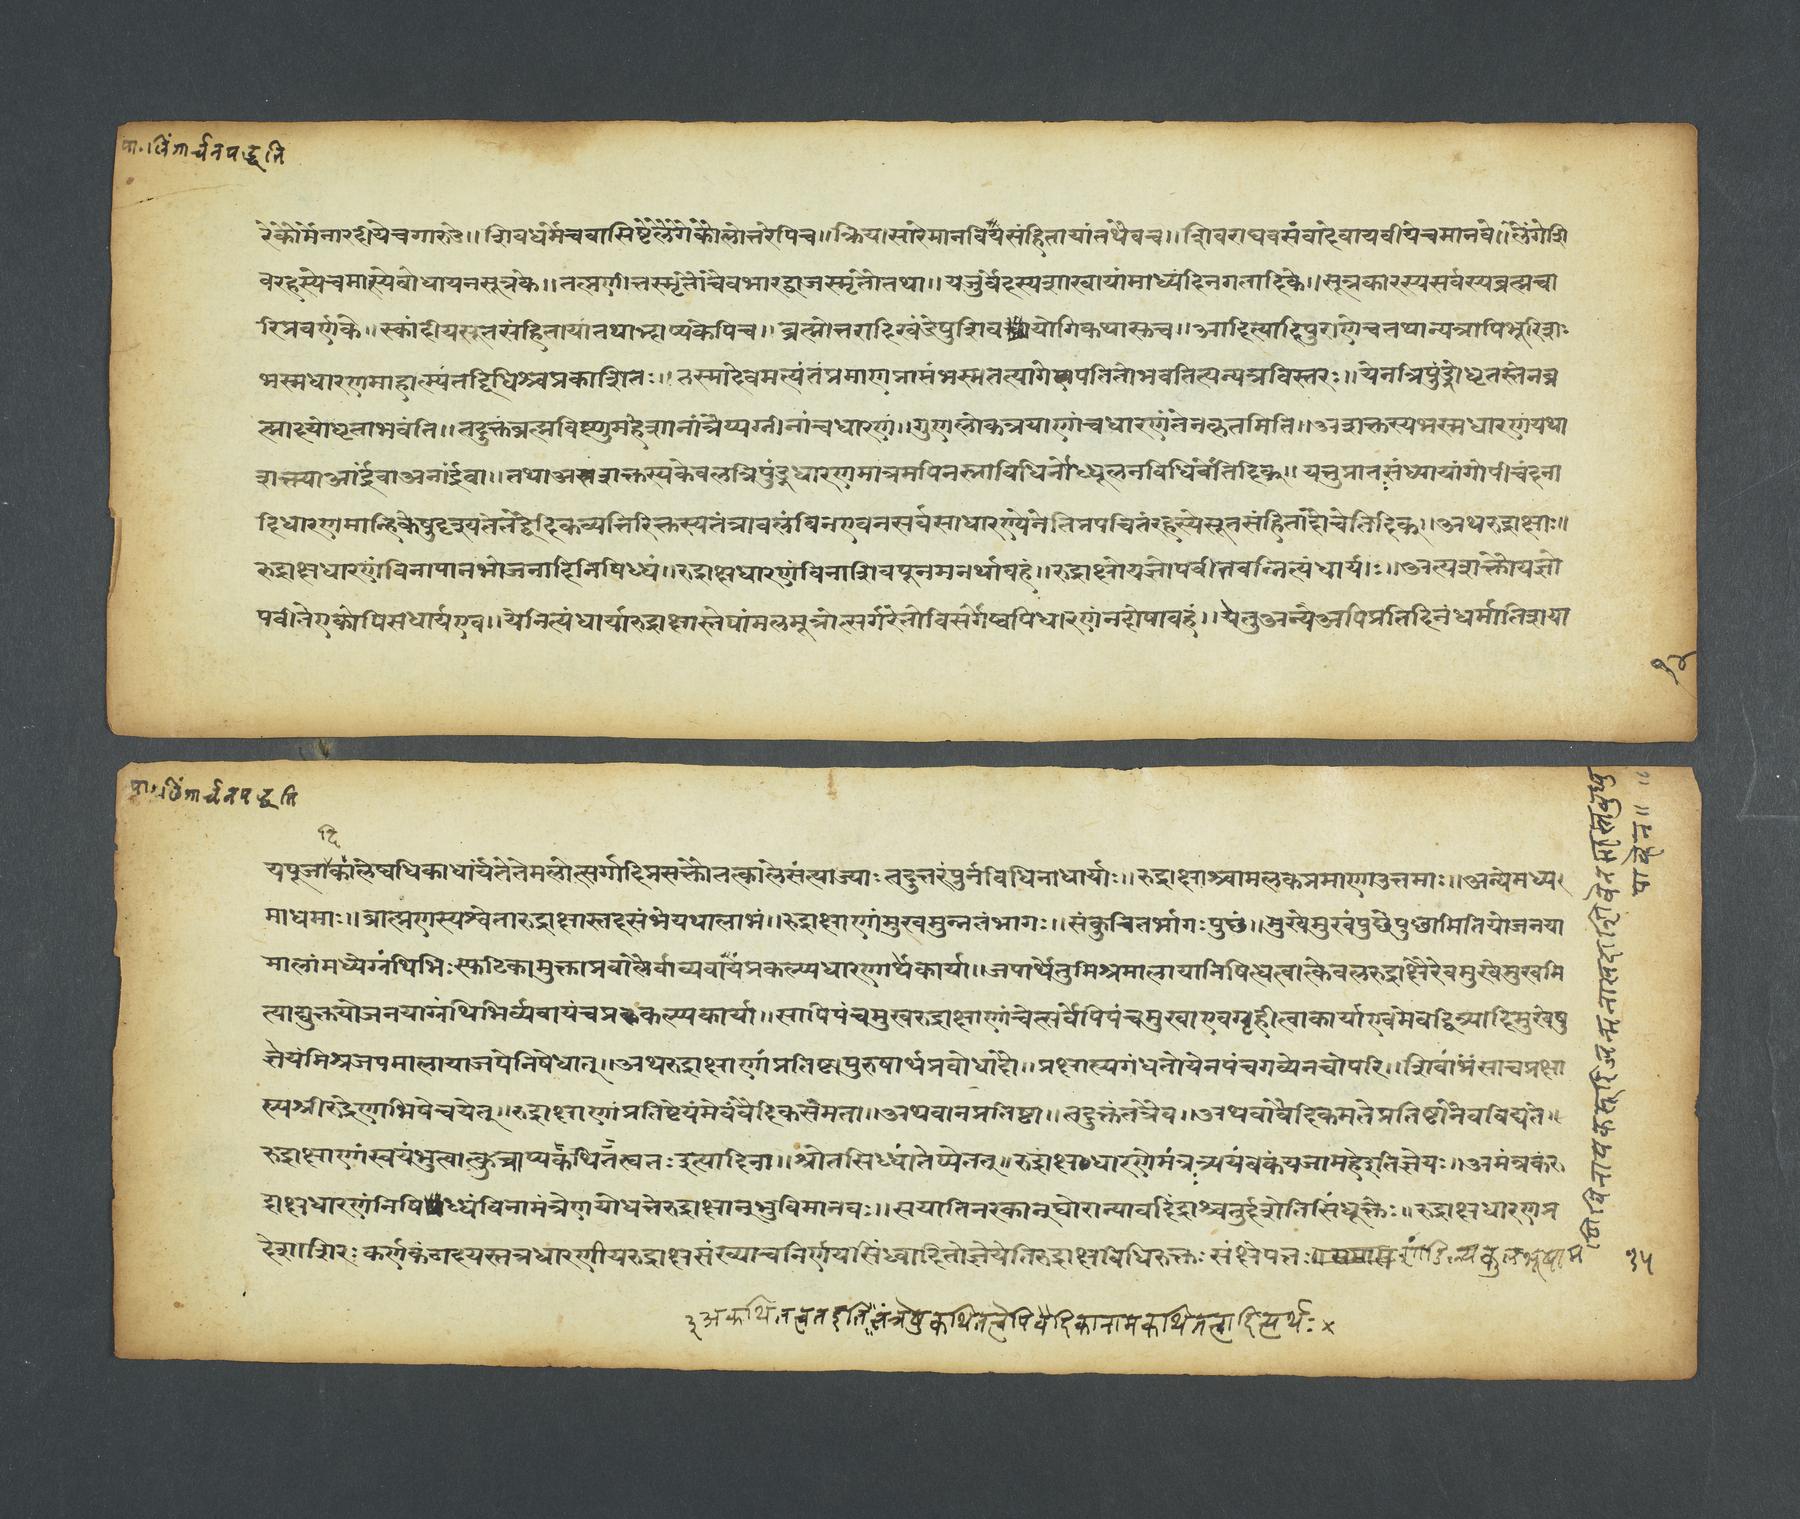 पा. लिंगार्चनपद्धति
रेकौर्मेनारदीयेचगारुडे॥ शिवधर्मेचवासिष्टेलैंगेकौलोत्तरेपिच॥ क्रियासारेमानवियेसंहितायांतथैवच॥ शिवराघवसंवादेवायवीयेचमानवे॥ लैंगेशि
वरहस्येचमात्स्येबोधायनसूत्रके॥ तत्प्रणीतस्मृतौचैवभारद्वाजस्मृतौतथा॥ यजुर्वेदस्यशाखायांमाध्यंदिनगतादिके॥ सूत्रकारस्यसर्वस्यब्रह्मचा
रिप्रवर्णके॥ स्कांदीयसूतसंहितायांतथाभाष्यकेपिच॥ ब्रह्मोत्तरादिखंडेषुशिवयोगिकथास्तच॥ आदित्यादिपुराणेचतथान्यत्रापिभूरिशः
भस्मधारणमाहात्म्यंतद्विधिश्चप्रकाशितः॥ तस्मादेवमत्यंतंप्रमाणप्राप्तंभस्मतत्यागेपतितोभवतित्यन्यत्रविस्तरः॥ येनत्रिपुंड्रोधृतस्तेनब्र
ह्मादयोधृताभवंति॥ तदुक्तंब्रह्मविष्णुमहेशानांत्रैय्यग्नीनांचधारणं॥ गुणलोकत्रयाणांचधारणंतेनकृतमिति॥ अशक्तस्यभस्मधारणंयथा
शक्त्याआर्द्रंवाअनार्द्रंवा॥ तथाअशक्तस्यकेवलत्रिपुंड्रधारणमात्रमपिनस्नाविधिर्नोध्धूलनविधिर्वेतिदिक्॥ यत्तुप्रातःसंध्यायांगोपीचंदना
दिधारणमान्हिकेषुदृश्यतेतद्वैदिकव्यतिरिक्तस्यतंत्रावलंबिनएवनसर्वसाधारण्येनेतिप्रपंचितंरहस्येसूतसंहितादौचेतिदिक्॥ अथरुद्राक्षाः॥
रुद्राक्षधारणंविनापानभोजनादिनिषिध्यं॥ रुद्राक्षधारणंविनाशिवपूजनमनर्थावहं॥ रुद्राक्षोयज्ञोपवीतवन्नित्यंधार्यः॥ अत्यशक्तौयज्ञो
पवीतेएकोपिसधार्यएव॥ येनित्यंधार्यारुद्राक्षास्तेषांमलमूत्रोत्सर्गरेतोविसर्गेष्वपिधारणंनदोषावहं॥ येतुअन्येअपिप्रतिदिनंधर्मातिशया
१४
पा. लिंगार्चनपद्धति
दि
यपूजाकालेष्वधिकाधार्यंतेतेमलोत्सर्गादिप्रसक्तौतत्कालेसंत्याज्याः तदुत्तरंपुनर्विधिनाधार्याः॥ रुद्राक्षाश्चामलकप्रमाणाउत्तमाः॥ अन्येमध्य
माधमाः॥ ब्राह्मणस्यश्वेतारुद्राक्षास्तदसंभेयथालाभं॥ रुद्राक्षाणांमुखमुन्नतंभागः॥ संकुचितर्भागःपुछं॥ मुखेमुखंपुछेपुछमितियोजनया
मालांमध्येग्नंथिभिःस्फटिकामुक्ताप्रवालैर्वाव्यवायंप्रकल्प्यधारणार्थंकार्या॥ जपार्थेतुमिश्रमालायानिषिध्धत्वात्केवलरुद्राक्षैरेवमुखेमुखमि
त्याद्युक्तयोजनयाग्नंथिभिर्व्यवायंचप्रकल्प्यकार्या॥ सापिपंचमुखरुद्राक्षाणांचेत्सर्वेपिपंचमुखाएवगृहीत्वाकार्याएवमेवद्वित्र्यादिमुखेषु
ज्ञेयंमिश्रजपमालायाजपेनिषेधात्॥ अथरुद्राक्षाणांप्रतिष्टापुरुषार्थप्रबोधादौ॥ प्रक्षाल्यगंधतोयेनपंचगव्येनचोपरि॥ शिवांभंसाचप्रक्षा
ल्यश्रीरुद्रेणाभिषेचयेत्॥ रुद्राक्षाणांप्रतिष्टेयंमेवंवैदिकसंमता॥ अथवानप्रतिष्टा॥ तदुक्तंतत्रैव॥ अथवावैदिकमतेप्रतिष्टानैवविद्यते॥
रुद्राक्षाणांस्वयंभुत्वात्कुत्राप्यकथितत्वतः इत्यादिना॥ श्रौतसिध्धांतेप्येतत्॥ रुद्राक्षधारणेमंत्रःत्र्ययंबकंयजामहेइतिज्ञेयः॥ अमंत्रकंरु
द्राक्षधारणंनिषिध्धंविनामंत्रेणयोधत्तेरुद्राक्षान्भुविमानवः॥ सयातिनरकान्घोरान्यावदिंद्राश्चतुर्दशेतिसिंधूक्तेः॥ रुद्राक्षधारणप्र
देशाशिरःकर्णकंठहृदयस्तत्रधारणीयरुद्राक्षसंख्याचनिर्णयसिंध्वादितोज्ञेयेतिरुद्राक्षविधिरुक्तः संक्षेपतः
१५
३ अकथितत्वतइतितंत्रेषुकथितत्वेपिवैदिकानामकथितत्वादित्यर्थः ×